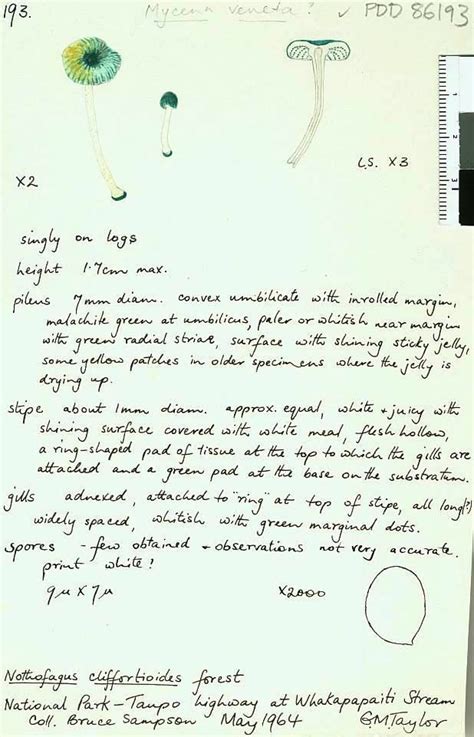 193.
Mycena veneta? ✓ PDD 86193
X2
L.S. X3
singly on logs
height 1·7cm max.
pileus 7mm diam. convex umbilicate with inrolled margin,
malachite green at umbilicus, paler or whitish near margin
with green radial striae, surface with shining sticky jelly,
some yellow patches in older specimens where the jelly is
drying up.
stipe about 1mm diam. approx. equal, white + juicy with
shining surface covered with white meal, flesh hollow,
a ring-shaped pad of tissue at the top to which the gills are
attached and a green pad at the base on the substratum.
gills adnexed, attached to "ring" at top of stipe, all long(?)
widely spaced, whitish with green marginal dots.
spores - few obtained + observations not very accurate.
print white?
9µ x 7µ X2000
Nothofagus cliffortioides forest
National Park - Taupo highway at Whakapapaiti Stream
Coll. Bruce Sampson May 1964 G.M.Taylor
0
1
2
3